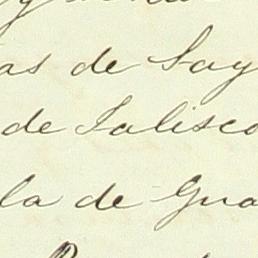 as de Say
de Jalisco
la de Gua